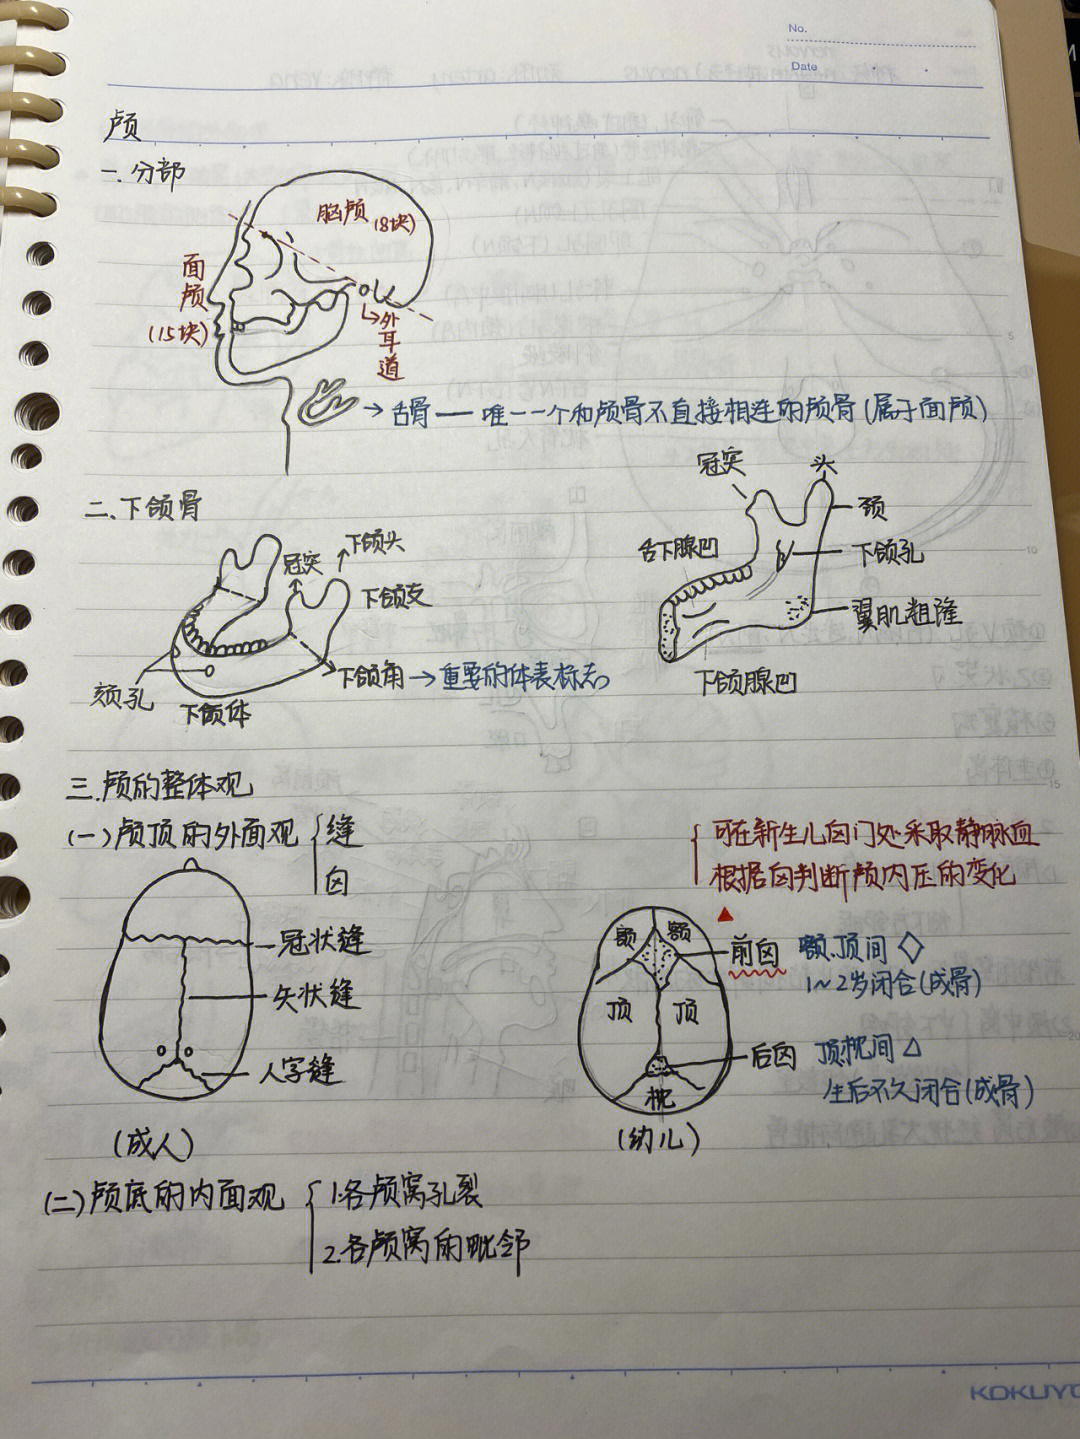 No.
Date
颅
一.分部
脑颅(8块)
面颅(15块)
外耳道
舌骨——唯一一个和颅骨不直接相连的颅骨(属于面颅)
二、下颌骨
冠突
下颌头
下颌支
下颌角→重要的体表标志
颏孔
下颌体
冠突
头
颈
舌下腺凹
下颌孔
翼肌粗隆
下颌腺凹
三.颅的整体观
(一)颅顶的外面观
缝
囟
冠状缝
矢状缝
人字缝
(成人)
可在新生儿囟门处采取静脉血
根据囟判断颅内压的变化
额 额
顶 顶
枕
前囟 额、顶间◇
1~2岁闭合(成骨)
后囟 顶枕间△
生后不久闭合(成骨)
(幼儿)
(二)颅底的内面观
1.各颅窝孔裂
2.各颅窝的毗邻
KOKUYO